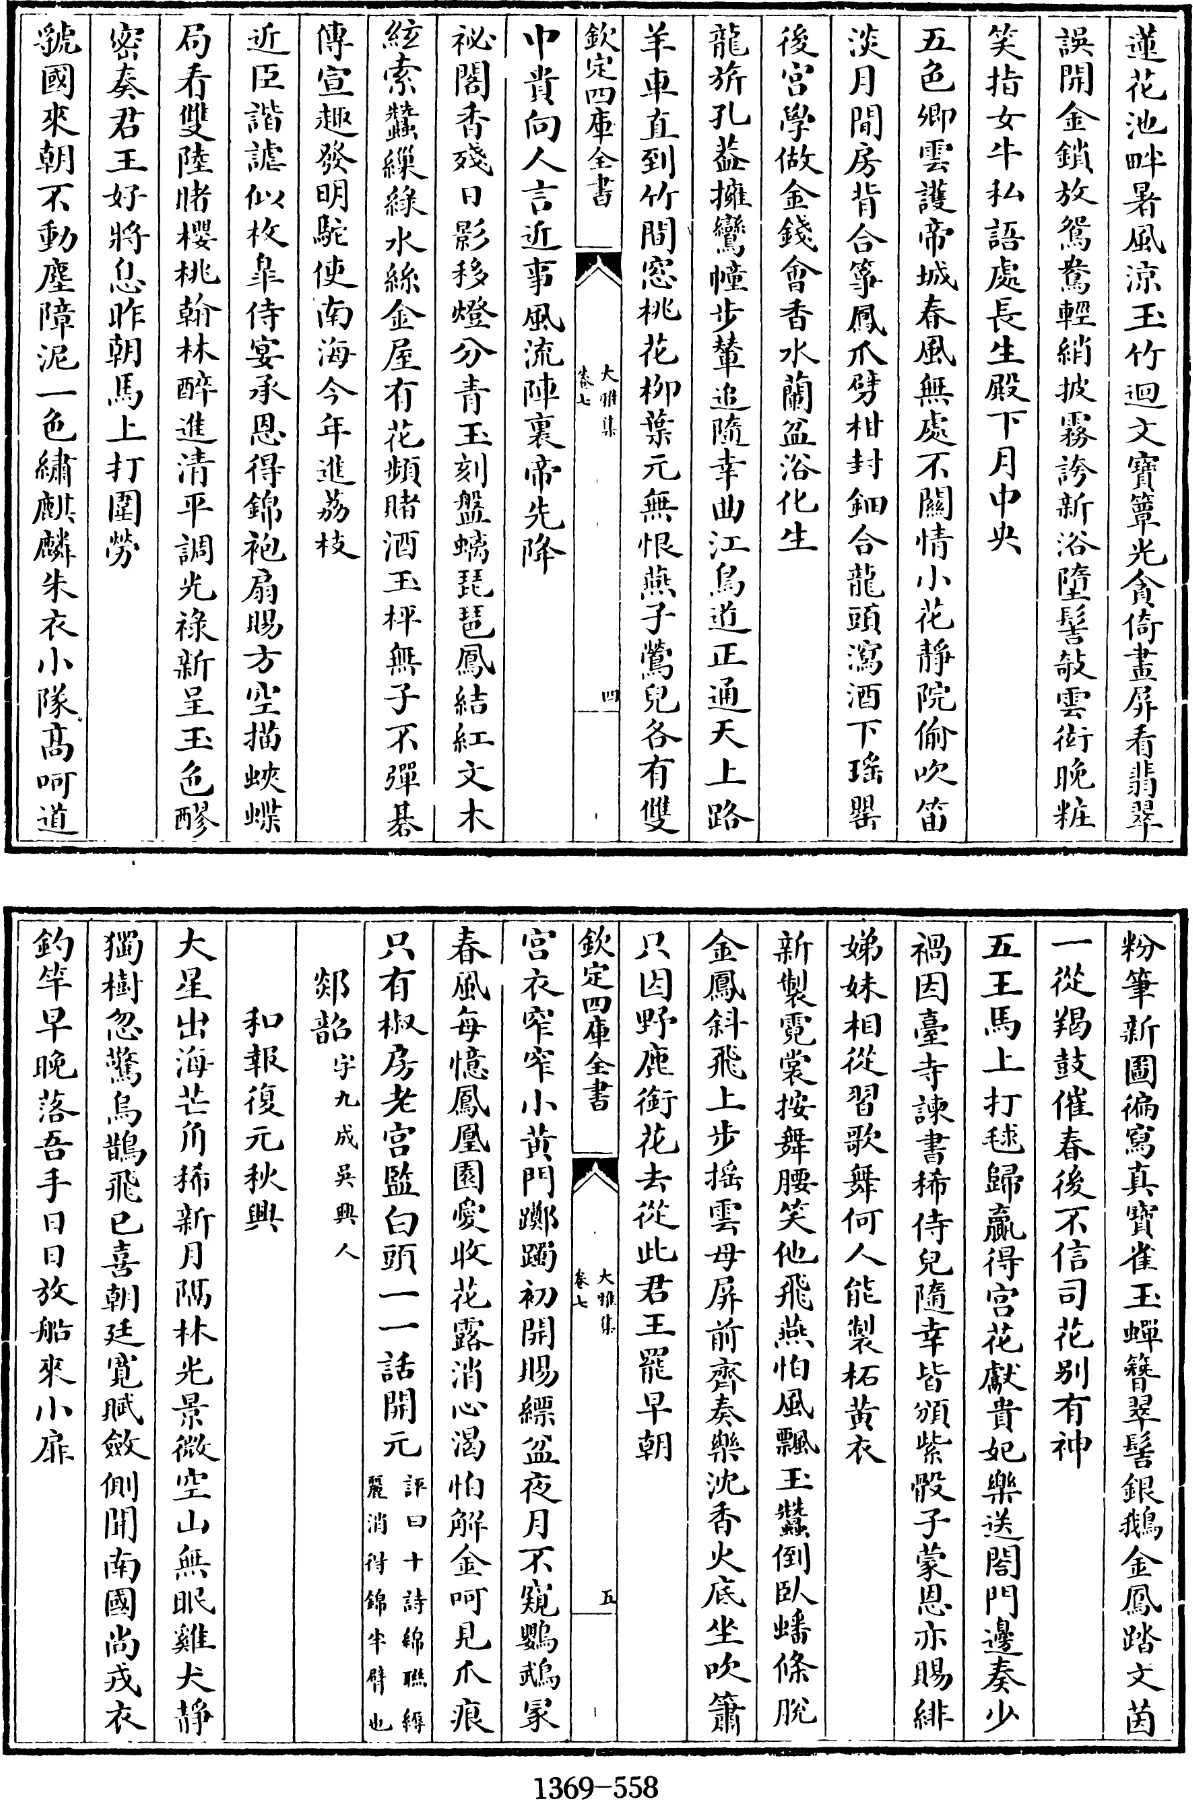 蓮花池畔暑風涼玉竹迴文寶簟光貪倚畫屏看翡翠
誤開金鎖放鴛鴦輕綃披霧誇新浴墮髻敧雲衒晚粧
笑指女牛私語處長生殿下月中央
五色卿雲護帝城春風無處不關情小花靜院偷吹笛
淡月閒房背合箏鳳爪劈柑封鈿合龍頭瀉酒下瑤罌
後宮學做金錢會香水蘭盆浴化生
龍旂孔蓋擁鸞幢步輦追隨幸曲江鳥道正通天上路
羊車直到竹間窓桃花柳葉元無恨燕子鶯兒各有雙
欽定四庫全書
大雅集
卷七
四
中貴向人言近事風流陣裏帝先降
祕閣香殘日影移燈分青玉刻盤螭琵琶鳳結紅文木
絃索蠶繅綠水絲金屋有花頻賭酒玉枰無子不彈碁
傳宣趣發明駝使南海今年進荔枝
近臣諧謔似枚臯侍宴承恩得錦袍扇賜方空描蛺蝶
局看雙陸賭櫻桃翰林醉進清平調光祿新呈玉色醪
密奏君王好將息昨朝馬上打圍勞
虢國來朝不動塵障泥一色繡麒麟朱衣小隊髙呵道
粉筆新圖徧寫真寶雀玉蟬簪翠髻銀鵝金鳳踏文茵
一從羯鼓催春後不信司花别有神
五王馬上打毬歸贏得宮花獻貴妃樂送閤門邊奏少
禍因臺寺諫書稀侍兒隨幸皆頒紫骰子蒙恩亦賜緋
娣妹相從習歌舞何人能製柘黃衣
新製霓裳按舞腰笑他飛燕怕風飄玉蠶倒臥蟠條脫
金鳳斜飛上步摇雲母屏前齊奏樂沈香火底坐吹簫
只因野鹿銜花去從此君王罷早朝
欽定四庫全書
大雅集
卷七
五
宮衣窄窄小黃門躑躅初開賜縹盆夜月不窺鸚鵡冢
春風每憶鳳凰園愛收花露消心渴怕解金呵見爪痕
只有椒房老宮監白頭一一話開元
評曰十詩綿聯縟
麗消得錦半臂也
郯韶字九成吳興人
和報復元秋興
大星出海芒角稀新月隔林光景微空山無眠雞犬靜
獨樹忽驚烏鵲飛已喜朝廷寛賦斂側聞南國尚戎衣
釣竿早晚落吾手日日放船來小扉
1369-558